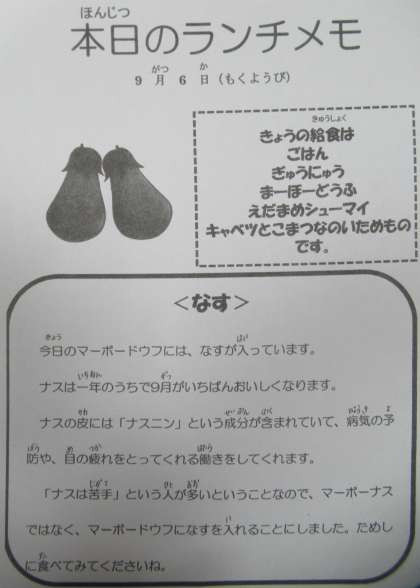 ほんじつ
本日のランチメモ
がつ か
9 月 6 日 (もくようび)
きゅうしょく
きょうの給食は
ごはん
ぎゅうにゅう
まーぼーどうふ
えだまめシューマイ
キャベツとこまつなのいためもの
です。
＜なす＞
きょう はい
今日のマーボードウフには、なすが入っています。
いちねん がつ
ナスは一年のうちで9月がいちばんおいしくなります。
かわ せいぶん ふく びょうき よ
ナスの皮には「ナスニン」という成分が含まれていて、病気の予
ぼう め つか はたら
防や、目の疲れをとってくれる働きをしてくれます。
にがて ひと おお
「ナスは苦手」という人が多いということなので、マーボーナス
い
ではなく、マーボードウフになすを入れることにしました。ためし
た
に食べてみてくださいね。